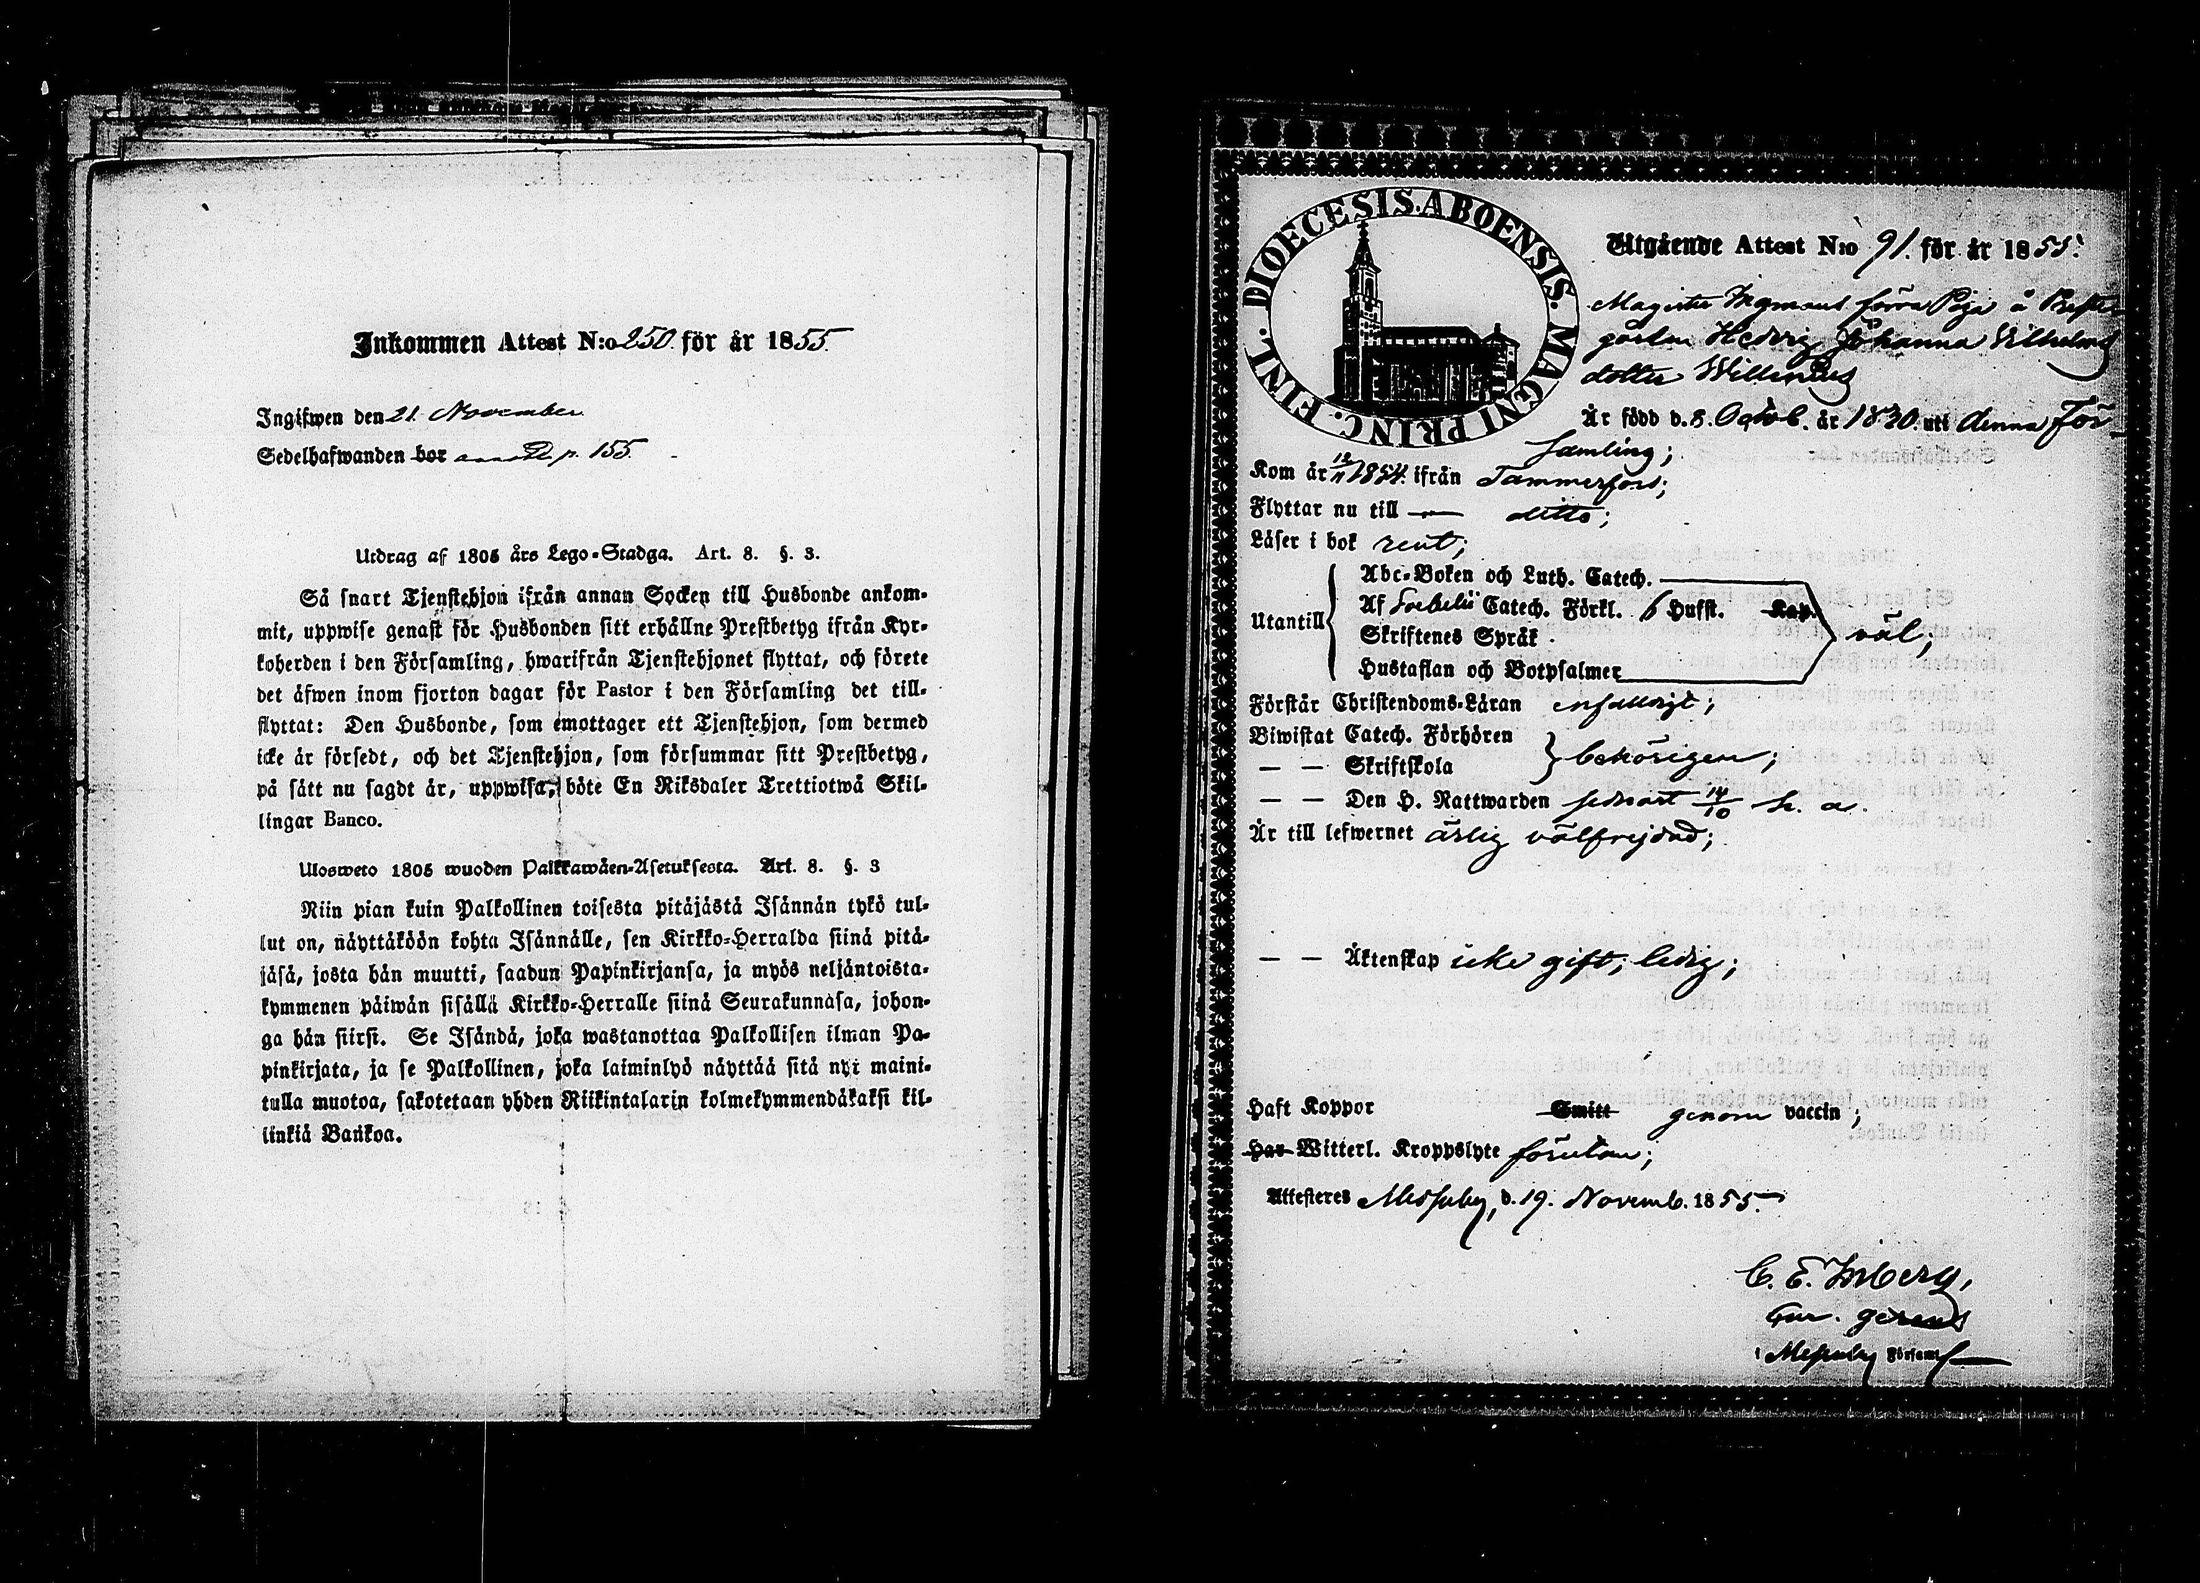 Inkommen Attest N:o 250 för år 1855.
Ingifwen den 21. November
Sedelhafwanden bor p. 155.
Utdrag af 1805 års Lego-Stadga. Art. 8. §. 3.
Så snart Tjenstehjon ifrån annan Socken till Husbonde ankom-
mit, uppwise genast för Husbonden sitt erhållne Prestbetyg ifrån Kyr-
koherden i den Församling, hwarifrån Tjenstehjonet flyttat, och förete
det äfwen inom fjorton dagar för Pastor i den Församling det till-
flyttat: Den Husbonde, som emottager ett Tjenstehjon, som dermed
icke är försedt, och det Tjenstehjon, som försummar sitt Prestbetyg,
på sätt nu sagdt är, uppwisa, böte En Riksdaler Trettiotwå Skil-
lingar Banco.
Ulosweto 1805 wuoden Palkkawäen-Asetuksesta. Art. 8. §. 3
Niin pian kuin Palkollinen toisesta pitäjästä Isännän tykö tul-
lut on, näyttäköön kohta Isännälle, sen Kirkko-Herralda siinä pitä-
jäsä, josta hän muutti, saadun Papinkirjansa, ja myös neljäntoista-
kymmenen päiwän sisällä Kirkko-Herralle siinä Seurakunnasa, johon-
ga hän siirsi. Se Isändä, joka wastanottaa Palkollisen ilman Pa-
pinkirjata, ja se Palkollinen, joka laiminlyö näyttää sitä nyt maini-
tulla muotoa, sakotetaan yhden Riikintalarin kolmekymmendäkaksi kil-
linkiä Bankoa.
DIOECESIS. ABOENSIS. MAGNI PRINC. FINL.
Utgående Attest N:o 91. för år 1855.
Magister Ingmans förra Piga å Prest-
gården Hedvig Johanna Vilhelms
dotter Willenius
Är född d. 8. Octob. år 1830 uti denna För-
samling;
Kom år 12/11 1854. ifrån Tammerfors;
Flyttar nu till — ditto;
Läser i bok rent;
Utantill
Abc-Boken och Luth. Catech.
Af Svebelii Catech. Förkl. 6 Hufst. Kap.
Skriftenes Språk
Hustaflan och Botpsalmer
väl;
Förstår Christendoms-Läran enfalldigt;
Biwistat Catech. Förhören
— — Skriftskola
behörigen;
— — Den H. Nattwarden sednast 14/10 h. a.
Är till lefwernet ärlig välfrejdad;
— — Äktenskap icke gift, ledig;
Haft Koppor Smitt genom vaccin;
Har Witterl. Kroppslyte förutan;
Attesteres Messuby, d. 19. Novemb. 1855.
C. E.
Cur. gerens
i Messuby Församl